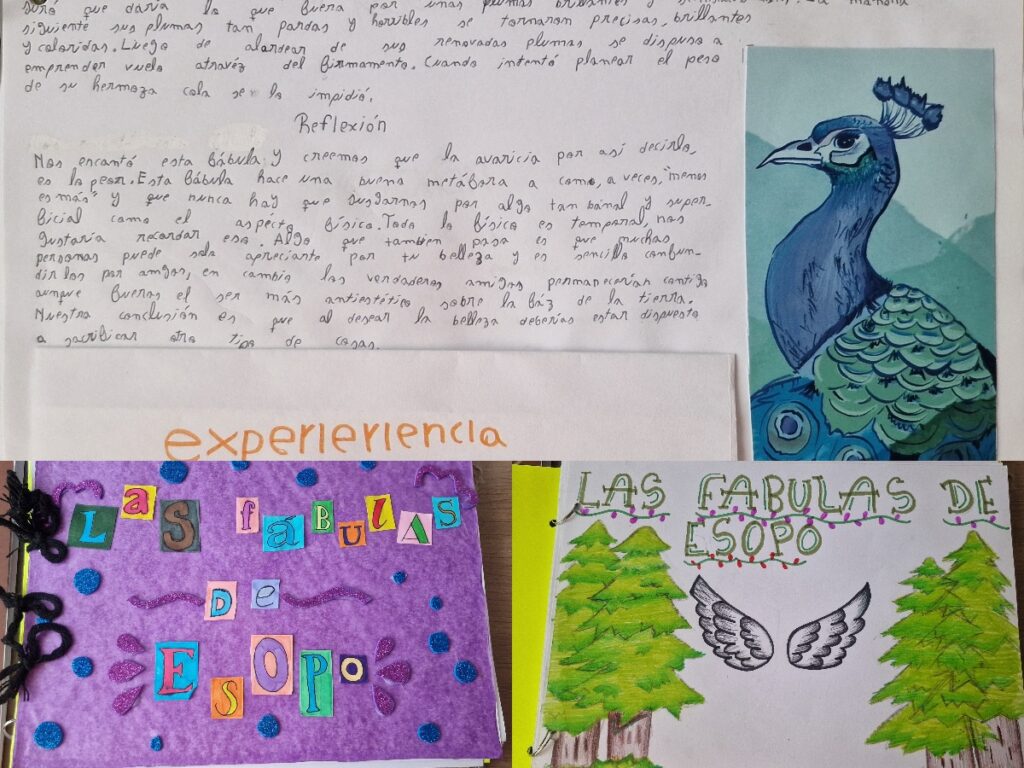 que daría lo que fuera por unas plumas brillantes y
siguiente sus plumas tan pardas y horribles se tornaron precisas, brillantes
y coloridas. Luego de alardear de sus renovadas plumas se dispuso a
emprender vuelo atravéz del firmamento. Cuando intentó planear el peso
de su hermoza cola se lo impidió.
Reflexión
Nos encantó esta fábula y creemos que la avaricia por así decirlo,
es lo peor. Esta fábula hace una buena metáfora a como, a veces, "menos
es más" y que nunca hay que jusgarnos por algo tan banal y super-
ficial como el aspécto físico. Todo lo físico es temporal, nos
gustaría recordar eso. Algo que tambien pasa es que muchas
personas puede solo apreciante por tu belleza y es sencillo confun-
dirlos por amigos, en cambio los verdaderos amigos permanecerían contigo
aunque fueras el ser más antiestético sobre la fáz de la tierra.
Nuestra conclusión es que al desear la belleza deberías estar dispuesto
a sacrificar otro tipo de cosas.
experieriencia
Las fábulas
De
Esopo
LAS FABULAS DE
ESOPO